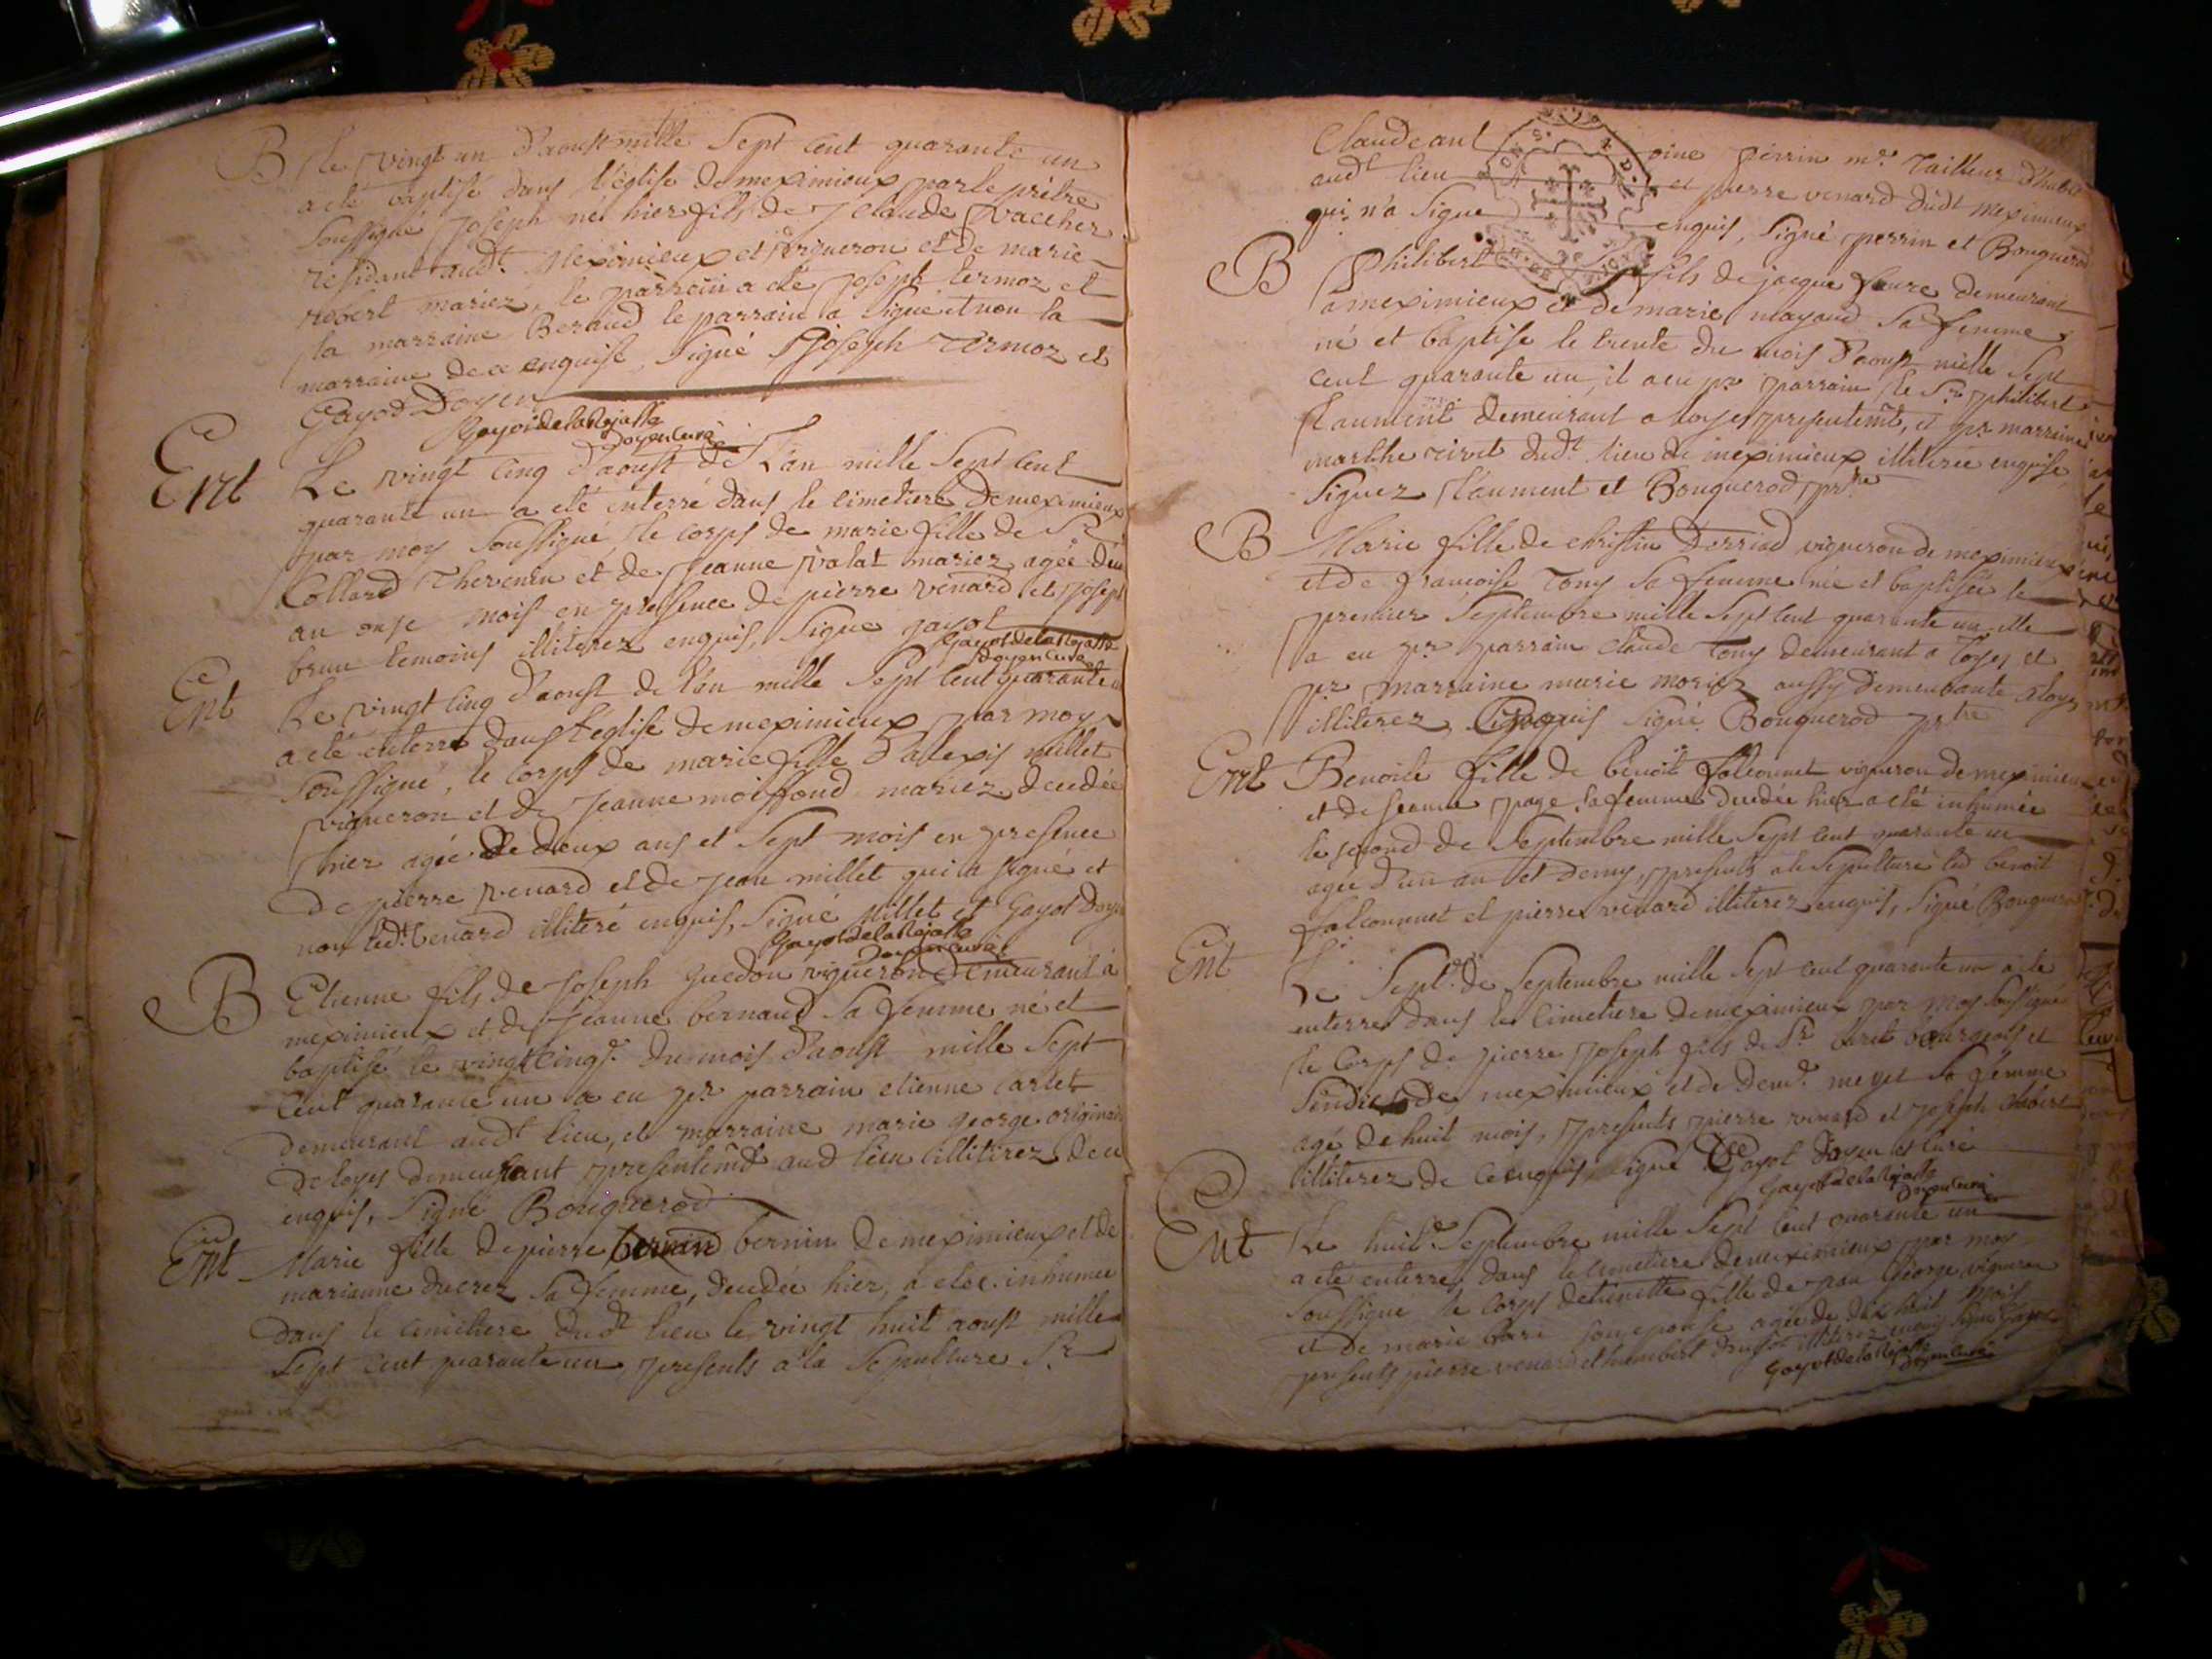 B Le vingt un d'aoust mille Sept Cent quarante un
a eté baptisé dans l'église de meximieux par le prêtre
Soussigné Joseph né hier fils de Claude Vaccher
résidant audt. Meximieux et vigneron et de marie
robert mariez, le parrein a eté Joseph termoz et
la marraine Beraud le parrain a Signé et non la
marraine de ce enquise, Signé Joseph Termoz et
Gayot Doyen
Gayot de la Rejasse
Doyen Curé
Ent Le vingt Cinq d'aoust de L'an mille Sept Cent
quarante un a eté enterré dans le cimetiere de meximieux
par moy Soussigné le corps de marie fille de Sr
Collard Thevenin et de Jeanne Valat mariez agée d'un
an onse mois en presence de pierre venard et Joseph
brun temoins illiterez enquis, Signe gayot
Gayot de la Rejasse
Doyen Curé
Ent Le vingt Cinq d'aoust de l'an mille Sept Cent quarante un
a eté enterré dans l'église de meximieux par moy
Soussigné, le corps de marie fille d'alexis millet
vigneron et de Jeanne moiffond mariez decedée
hier agée de deux ans et Sept mois en presence
de pierre venard et de Jean millet qui a signé et
non ledt. venard illiteré enquis, Signé Millet et Gayot Doyen
Gayot de la Rejasse
Doyen Curé
B Etienne fils de Joseph guedon vigneron demeurant à
meximieux et de Jeanne bernaud Sa femme né et
baptisé le vingt Cinqe. du mois d'aoust mille Sept
Cent quarante un a eu pr parrain etienne carlet
demeurant audt lieu, et marraine marie george originaire
de loyes demeurant presentemt. aud lieu illiterez de ce
enquis, Signé Bouquerod
Ent Marie fille de pierre bernin de meximieux et de
marianne ducrez Sa femme, decedée hier, a eté inhumée
dans le cimetiere dudt lieu le vingt huit aoust mille
Sept Cent quarante un, presents a la Sepulture Sr
Claude ant oine perrin me. Tailleur d'habit
audt lieu et pierre venard dudt meximieux
qui n'a Signe enquis, Signé perrin et Bouquerod
B Philibert fils de jacque feure demeurant
a meximieux et de marie mayaud Sa femme
né et baptise le trente du mois d'aoust mille Sept
Cent quarante un, il a eu pr parrain le Sr philibert
Laument demeurant a loyes presentemt, et pr marraine
marthe rivet dudt lieu de meximieux illiterée enquise
Signez Laument et Bouquerod ptre
B Marie fille de christin Derriad vigneron de meximieux
et de francoise Tony Sa femme née et baptisée le
premier Septembre mille Sept Cent quarante un, elle
a eu pr parrain Claude Tony demeurant a loyes et
pr marraine marie moriez aussy demeurante a loyes
illiterez enquis Signé Bouquerod ptre
Ent Benoite fille de benoit falconnet vigneron de meximieux
et de Jeanne page Sa femme decedée hier a eté inhumée
le second de Septembre mille Sept Cent quarante un
agée d'un an et demy, presents a la Sepulture led benoit
falconnet et pierre venard illiterez enquis, Signé Bouquerod
Ent Le Sept. de Septembre mille Sept Cent quarante un a eté
enterré dans le cimetiere de meximieux par moy soussigné
le Corps de pierre Joseph fils de Sr bourgeois et
Sindic de meximieux et de deme. meyet Sa femme
agé de huit mois, presents pierre venard et Joseph
illiterez de ce enquis, Signé Gayot Doyen et Curé
Gayot de la Rejasse
Doyen Curé
Ent Le huit. Septembre mille Sept Cent quarante un
a eté enterré dans le cimetiere de meximieux par moy
Soussigné le corps de fille de Jean George vigneron
et de marie Son epouse agée de dix huit mois
presents pierre venard et humbert illiterez enquis Signé Gayot
Gayot de la Rejasse
Doyen Curé